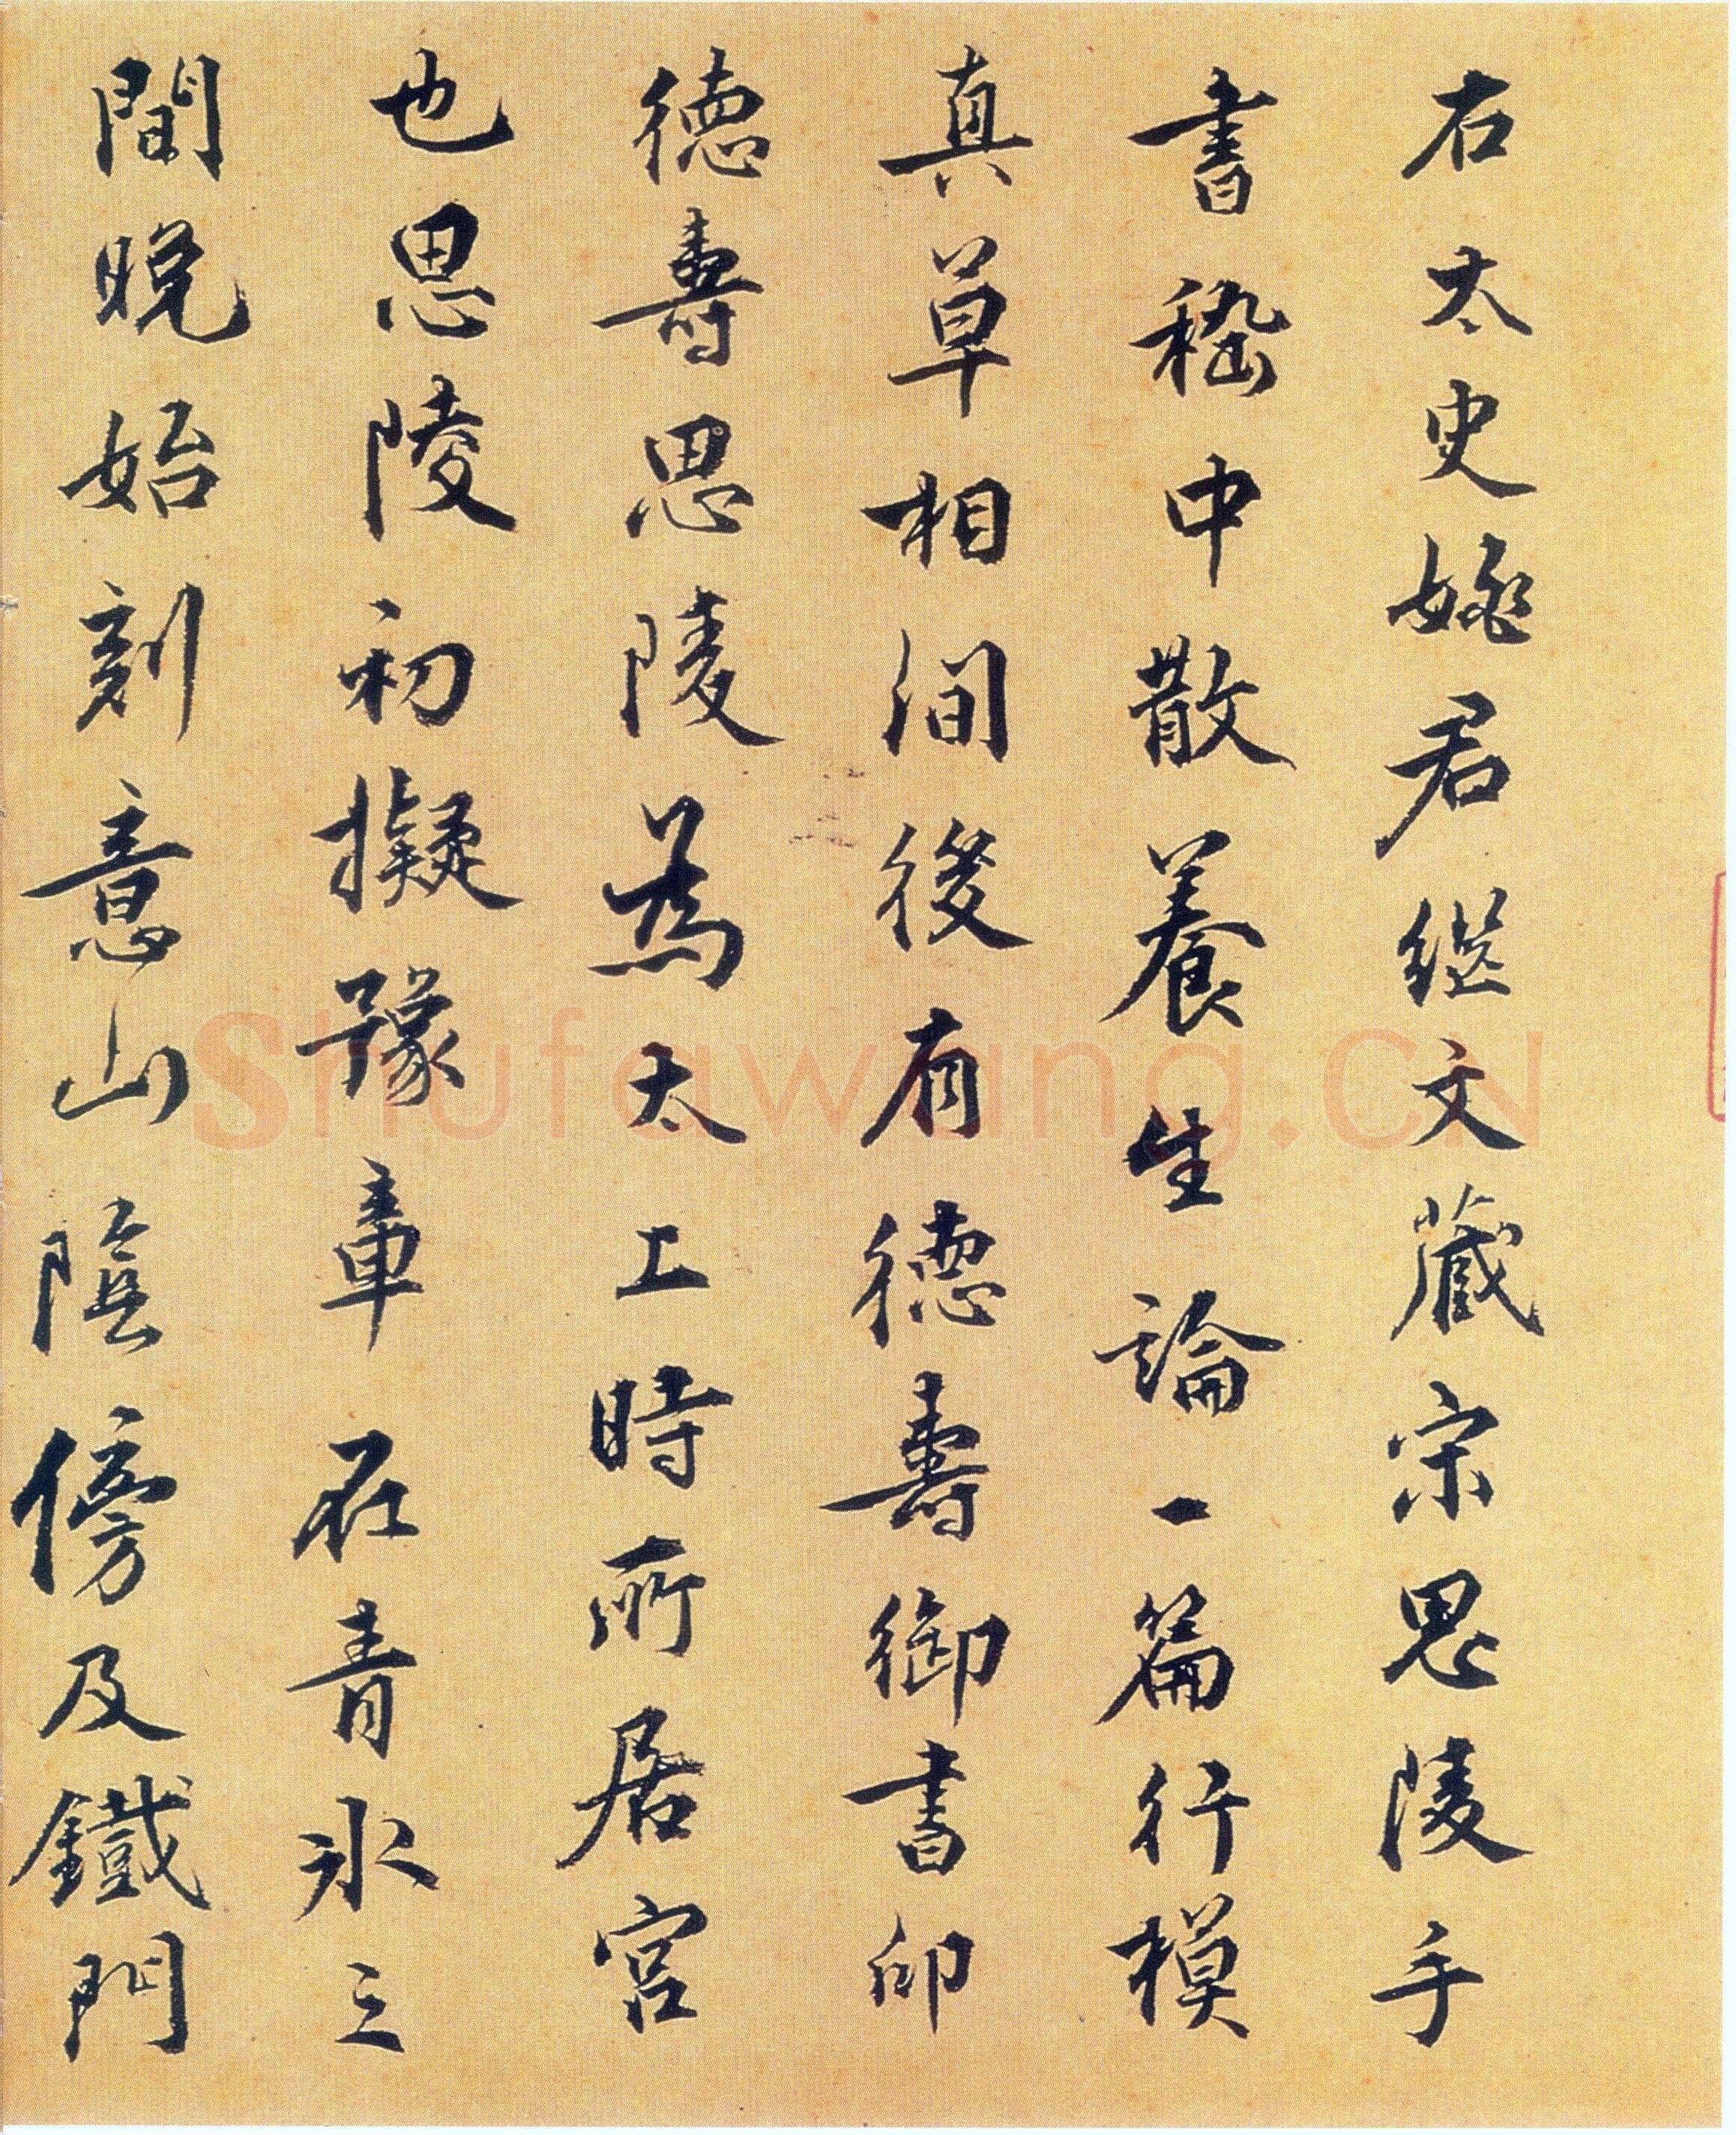 右太史姚君继文藏宋思陵手
書嵇中散養生論一篇行模
真草相间後有德壽御書印
德壽思陵為太上時所居宫
也思陵初擬豫章在青氷之
間晚始刻意山陰傍及鐵門
Shufawang.CN